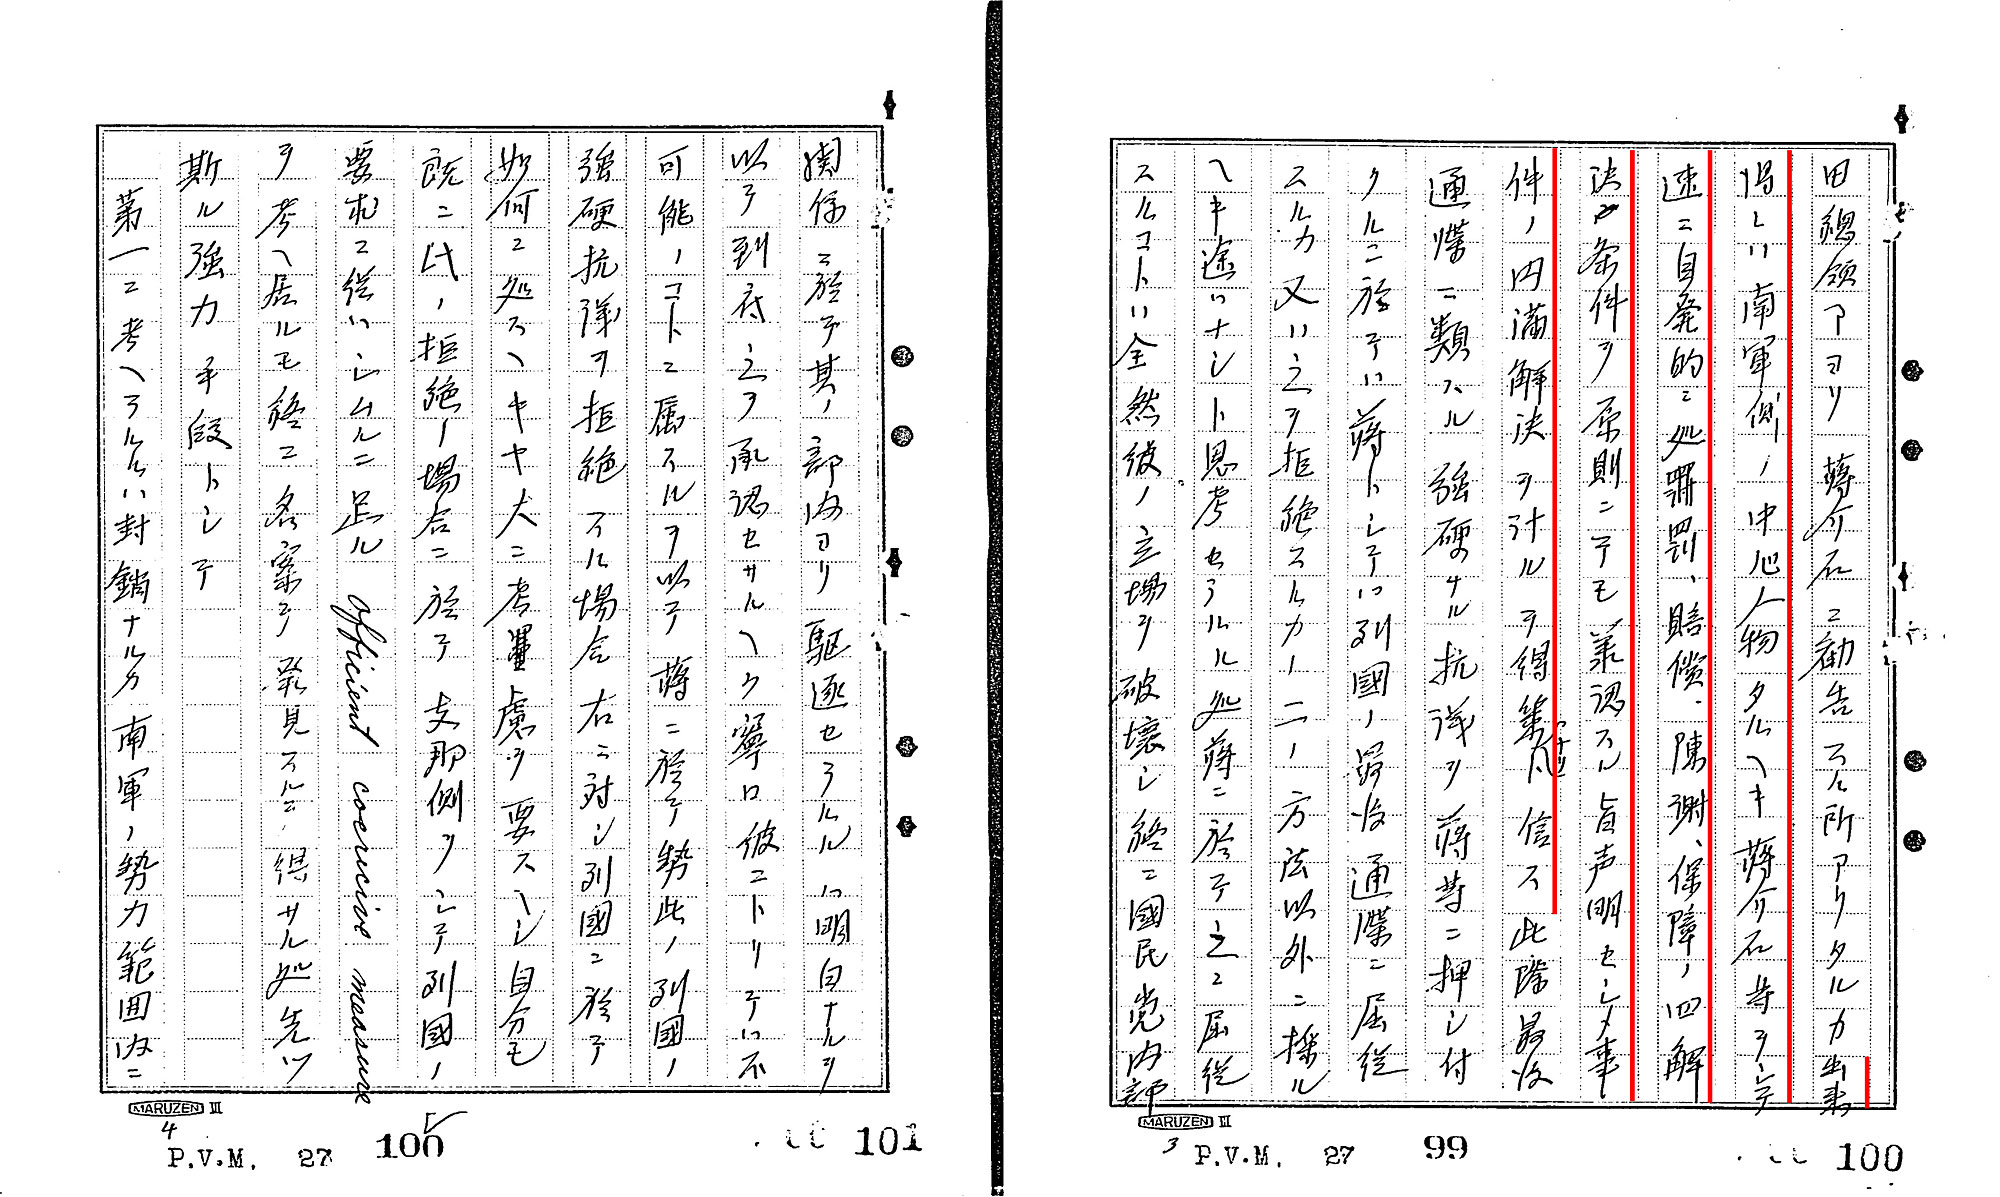 田総領事ヨリ蒋介石ニ勧告スル所アリタルカ出来
得レハ南軍側ノ中心人物タルヘキ蒋介石等ヲシテ
速ニ自発的ニ処罪罰、賠償、陳謝、保障ノ四解
決条件ヲ原則ニテモ承認スル旨声明セシメ事
件ノ円満解決ヲ計ルヲ得策ナリト信ス此際最後
通牒ニ類スル強硬ナル抗議ヲ蒋等ニ押シ付
クルニ於テハ蒋トシテハ列國ノ最後通牒ニ屈従
スルカ又ハ之ヲ拒絶スルカノ二ノ方法以外ニ採ル
ヘキ途ハナシト思考セラルル処蒋ニ於テ之ニ屈従
スルコトハ全然彼ノ立場ヲ破壊シ終ニ國民党内部
MARUZEN III
3 P.V.M. 27 99 100
関係ニ於テ其ノ部内ヨリ駆逐セラルルハ明白ナルヲ
以テ到底之ヲ承認セサルヘク寧ロ彼ニトリテハ不
可能ノコトニ属スルヲ以テ蒋ニ於テ勢此ノ列國ノ
強硬抗議ヲ拒絶スル場合右ニ対シ列國ニ於テ
如何ニ処スヘキヤ大ニ考量慮ヲ要スヘシ自分モ
既ニ代ノ拒絶ノ場合ニ於テ支那側ヲシテ列國ノ
要求ニ従ハシムルニ足ル efficient coercive measure
ヲ考ヘ居ルモ終ニ名案ヲ発見スルヲ得サル処先ツ
斯ル強力手段トシテ
第一ニ考ヘラルルハ封鎖ナルカ南軍ノ勢力範囲内ニ
MARUZEN III
4 P.V.M. 27 100 101